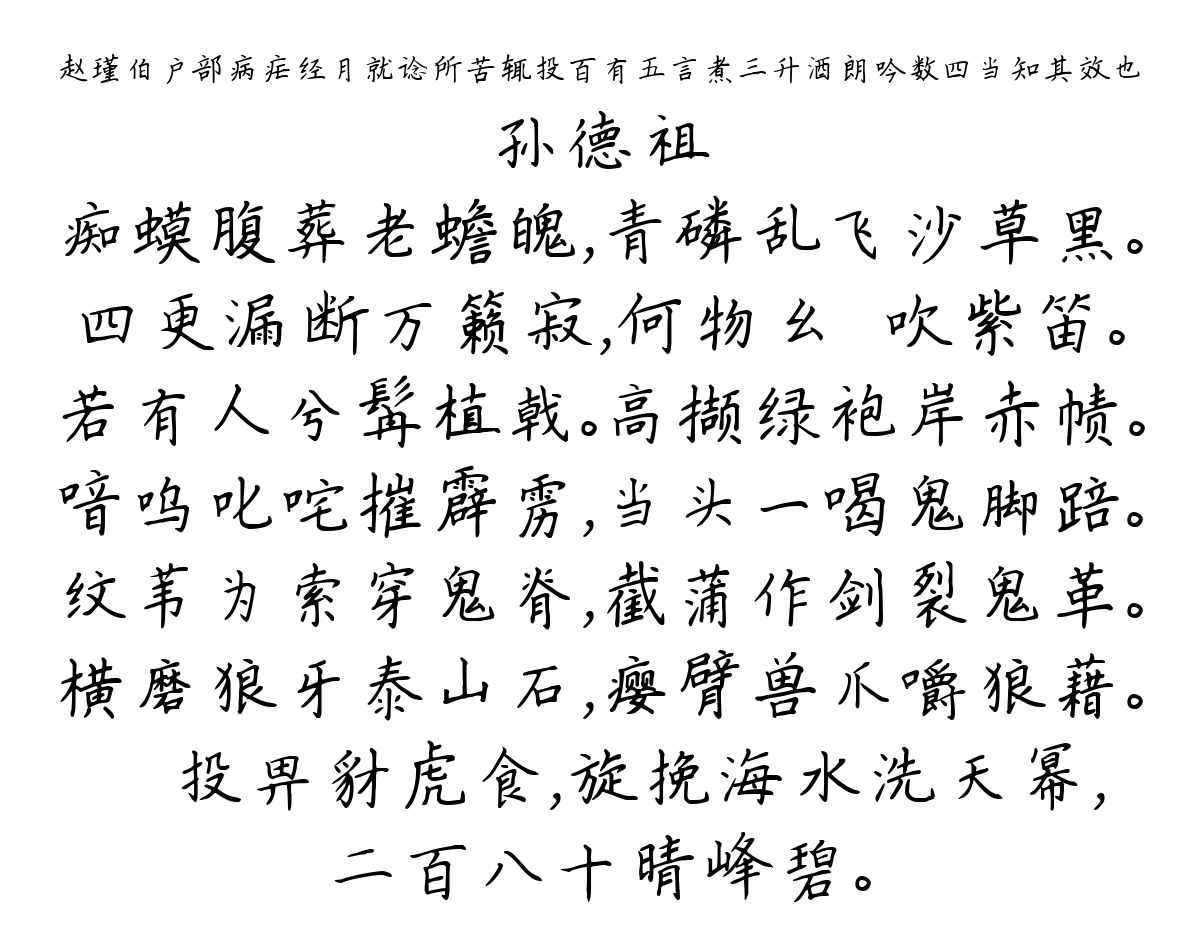 赵瑾伯户部病疟经月就谂所苦辄投百有五言煮三升洒朗吟数四当知其效也
孙德祖
痴蟆腹葬老蟾魄,青磷乱飞沙草黑。
四更漏断万籁寂,何物幺 吹紫笛。
若有人兮髯植戟。高撷绿袍岸赤帻。
喑呜叱咤摧霹雳,当头一喝鬼脚踣。
纹苇为索穿鬼脊,截蒲作剑裂鬼革。
横磨狼牙泰山石,瘿臂兽爪嚼狼藉。
投畀豺虎食,旋挽海水洗天幂,
二百八十晴峰碧。